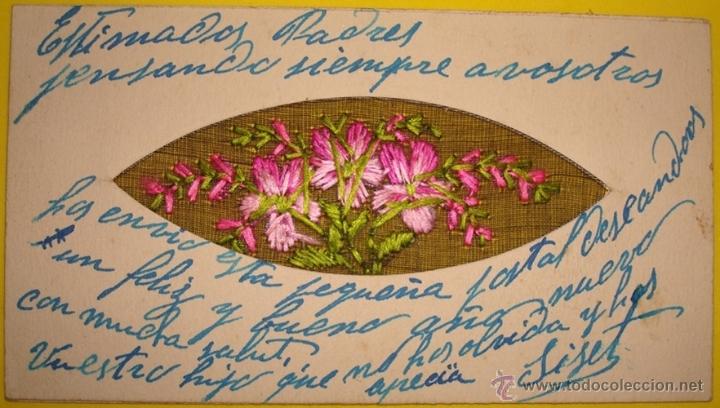 Estimados Padres
pensando siempre a vosotros
hos envio esta pequeña postal deseandoos
un feliz y bueno año nuevo
con mucha salut,
Vuestro hijo que no hos olvida y hos
apecia
© www.todocoleccion.net